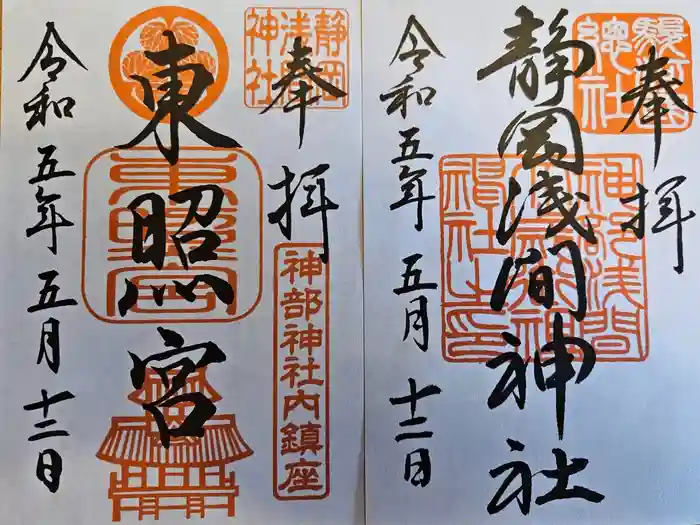 駿河國
總社
奉拝
静岡浅間神社
神部浅間
令和五年五月十二日
静岡
浅間
神社
奉拝
神部神社内鎮座
東照宮
東照宮
令和五年五月十二日